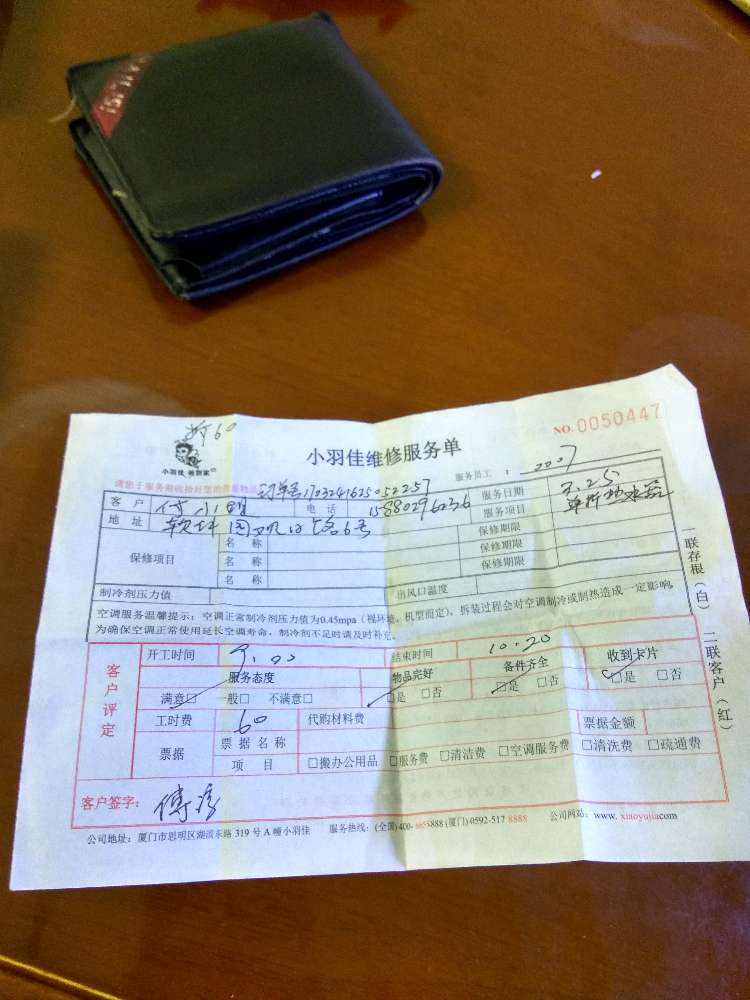 NO.0050447
小羽佳维修服务单
小羽佳 物到家
服务员工 : 2007
订单号17032416250 52257
客户 电话 15880296236 服务日期 3.25
地址 服务项目
保修项目 名称 保修期限
名称 保修期限
名称 保修期限
制冷剂压力值 出风口温度
空调服务温馨提示：空调正常制冷剂压力值为0.45mpa（视环境、机型而定），拆装过程会对空调制冷或制热造成一定影响，
为确保空调正常使用延长空调寿命，制冷剂不足时请及时补充。
一联存根（白） 二联客户（红）
客户评定
开工时间 9.00 结束时间 10.20
服务态度 物品完好 备件齐全 收到卡片
满意□ 一般□ 不满意□ □是 □否 □是 □否 □是 □否
工时费 60 代购材料费 票据金额
票据 票据名称
项目 □搬办公用品 □服务费 □清洁费 □空调服务费 □清洗费 □疏通费
客户签字：
公司地址：厦门市思明区湖滨东路 319 号 A 幢小羽佳 服务热线：(全国)400-8855888 (厦门) 0592-517 8888 公司网站：www. xiaoyujia com